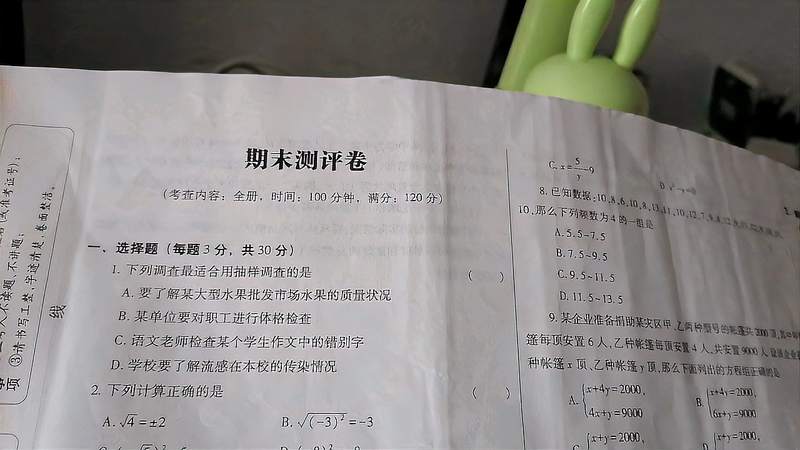 期末测评卷
(考查内容：全册，时间：100分钟，满分：120分)
一、选择题（每题3分，共30分）
1. 下列调查最适合用抽样调查的是 ( )
A. 要了解某大型水果批发市场水果的质量状况
B. 某单位要对职工进行体格检查
C. 语文老师检查某个学生作文中的错别字
D. 学校要了解流感在本校的传染情况
2. 下列计算正确的是 ( )
A. √4=±2
B. √(-3)²=-3
C. x=5/y-9
8. 已知数据：10,8,6,10,8,13,11,10,12,7,9,8,12
10,那么下列频数为4的一组是
A. 5.5~7.5
B. 7.5~9.5
C. 9.5~11.5
D. 11.5~13.5
9. 某企业准备捐助某灾区甲、乙两种型号的帐篷共2000顶,其中
篷每顶安置6人,乙种帐篷每顶安置4人,共安置9000人,设该企业
种帐篷x顶、乙种帐篷y顶,那么下面列出的方程组正确的是
A. {x+4y=2000,
4x+y=9000
B. {x+4y=2000,
6x+y=9000
C. {x+y=2000,
D. {x+y=2000,
线
③请书写工整,字迹清楚、卷面整洁。
项